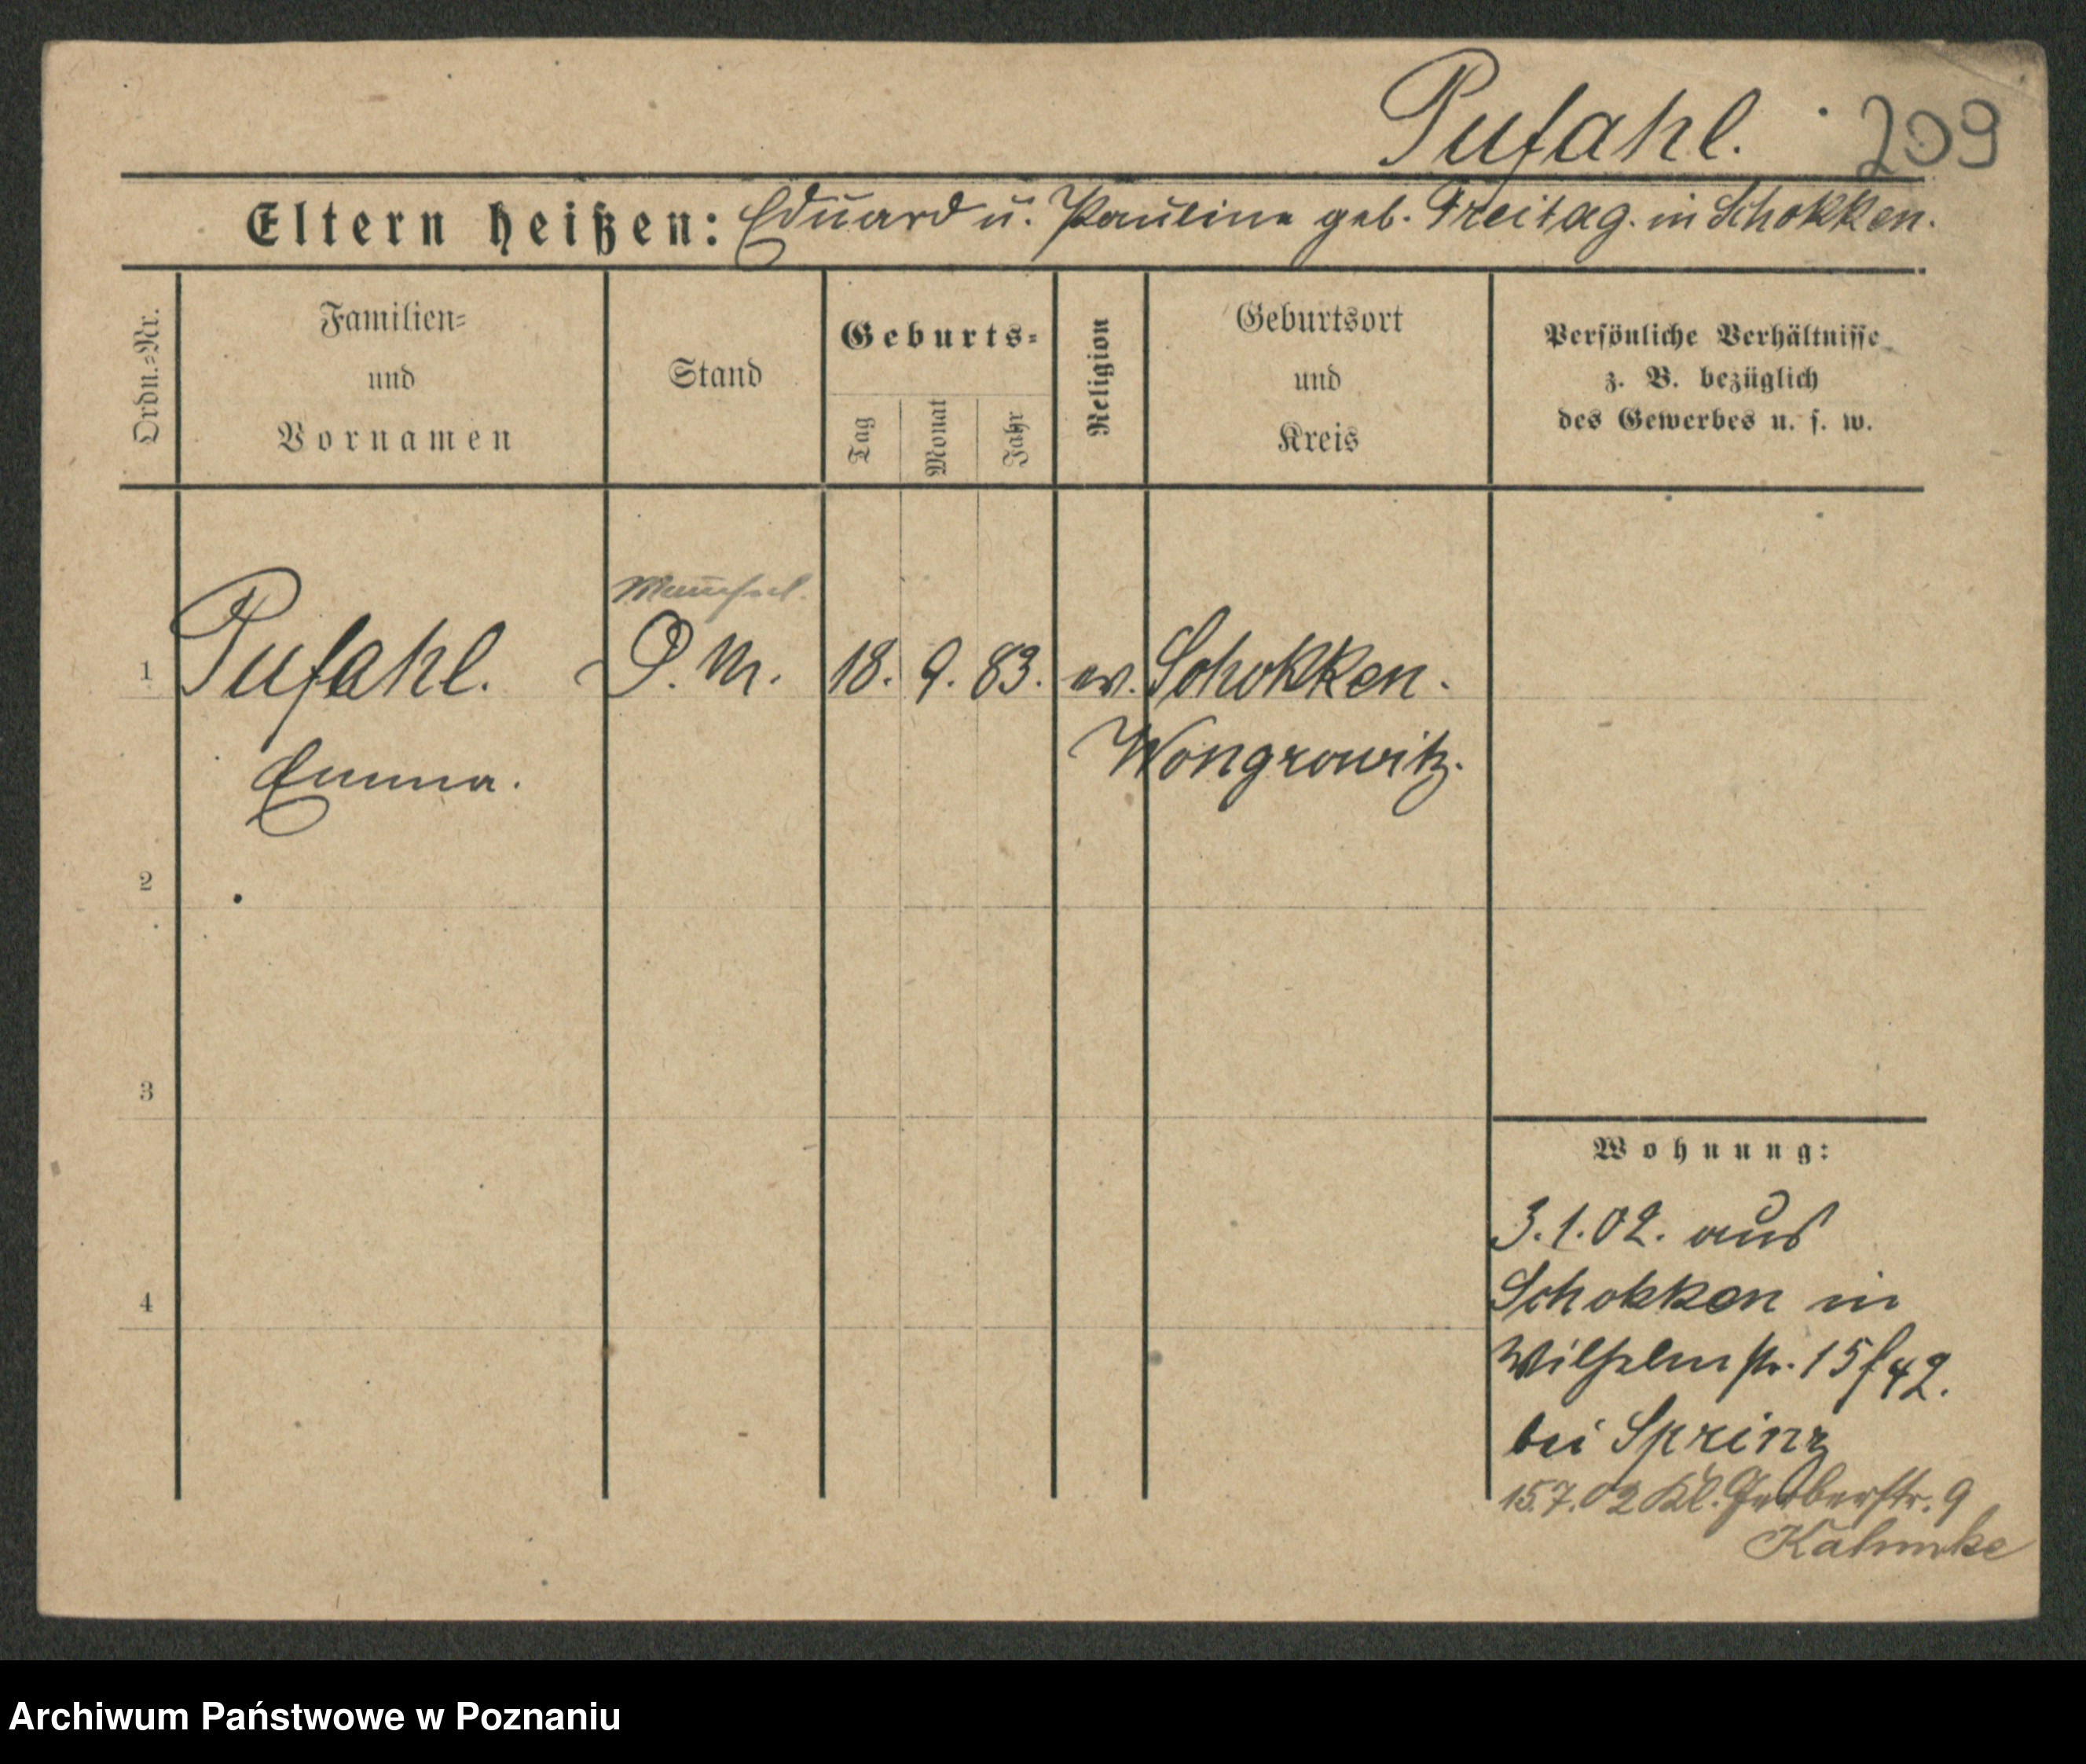 Pufahl. 209
Eltern heißen: Eduard u. Pauline geb. Freitag. in Schokken.
Ordn.=Nr.
Familien=
und
Vornamen
Stand
Geburts=
Tag
Monat
Jahr
Religion
Geburtsort
und
Kreis
Persönliche Verhältnisse
z. B. bezüglich
des Gewerbes u. s. w.
1 Pufahl. D. M. 18. 9. 83. ev. Schokken.
Emma. Wongrowitz.
2
3
4
Wohnung:
3.1.02. aus
Schokken in
Wilhelmstr. 15
bei Sprinz
15.7.02 Kl. Gerberstr. 9
Archiwum Państwowe w Poznaniu